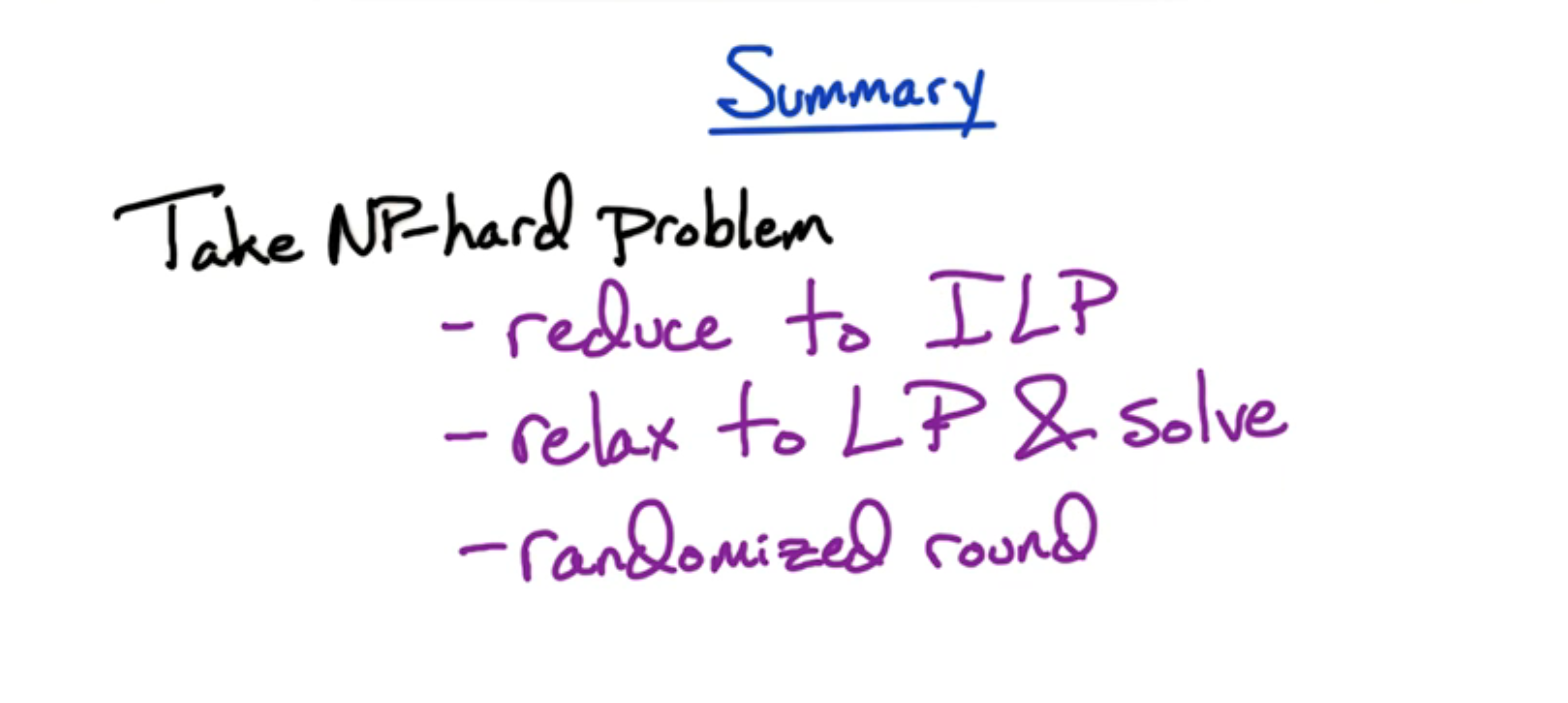 Summary
Take NP-hard problem
- reduce to ILP
- relax to LP & solve
- randomized round